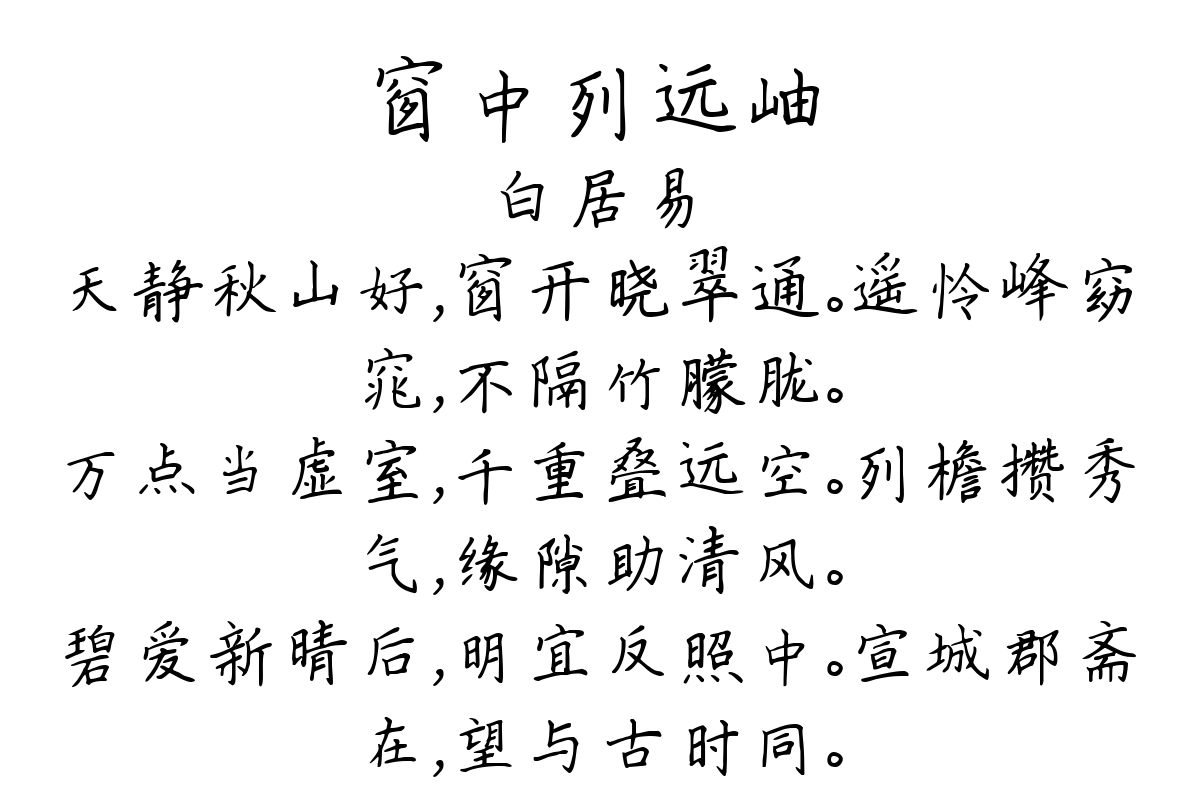 窗中列远岫
白居易
天静秋山好,窗开晓翠通。遥怜峰窈
窕,不隔竹朦胧。
万点当虚室,千重叠远空。列檐攒秀
气,缘隙助清风。
碧爱新晴后,明宜反照中。宣城郡斋
在,望与古时同。